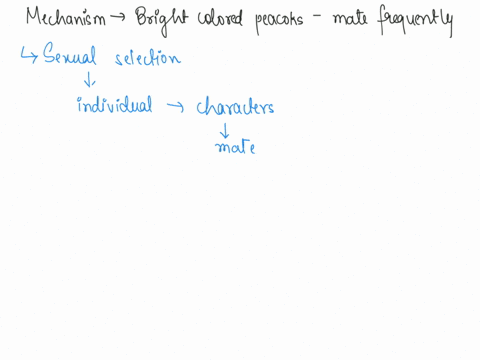 Mechanism → Bright colored peacoks - mate frequently
↳ Sexual selection
↓
individual → characters
↓
mate